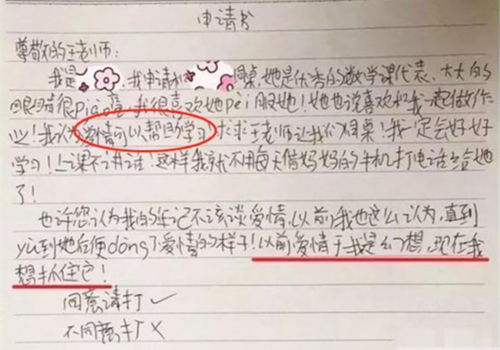 申请书
尊敬的王老师：
我是，我申请和同桌，她是优秀的数学课代表、大大的
眼睛很piao亮，我很喜欢她pei服她！她也说喜欢和我一起做作
业！我认为爱情可以帮助学习求求王老师让我们同桌！我一定会好好
学习！上课不讲话！这样我就不用每天借妈妈的手机打电话给她
了！
也许您认为我的年记不该谈爱情，以前我也这么认为，直到
yu到她后便dong了爱情的样子！以前爱情于我是幻想，现在我
想抓住它！
同意请打✓
不同意打✗